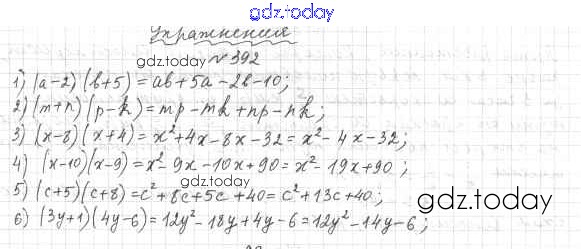 gdz.today
Упражнения
№392
1) (a-2)(b+5)=ab+5a-2b-10;
2) (m+n)(p-k)=mp-mk+np-nk;
3) (x-8)(x+4)=x²+4x-8x-32=x²-4x-32;
4) (x-10)(x-9)=x²-9x-10x+90=x²-19x+90;
gdz.today
5) (c+5)(c+8)=c²+8c+5c+40=c²+13c+40;
gdz.today
6) (3y+1)(4y-6)=12y²-18y+4y-6=12y²-14y-6;